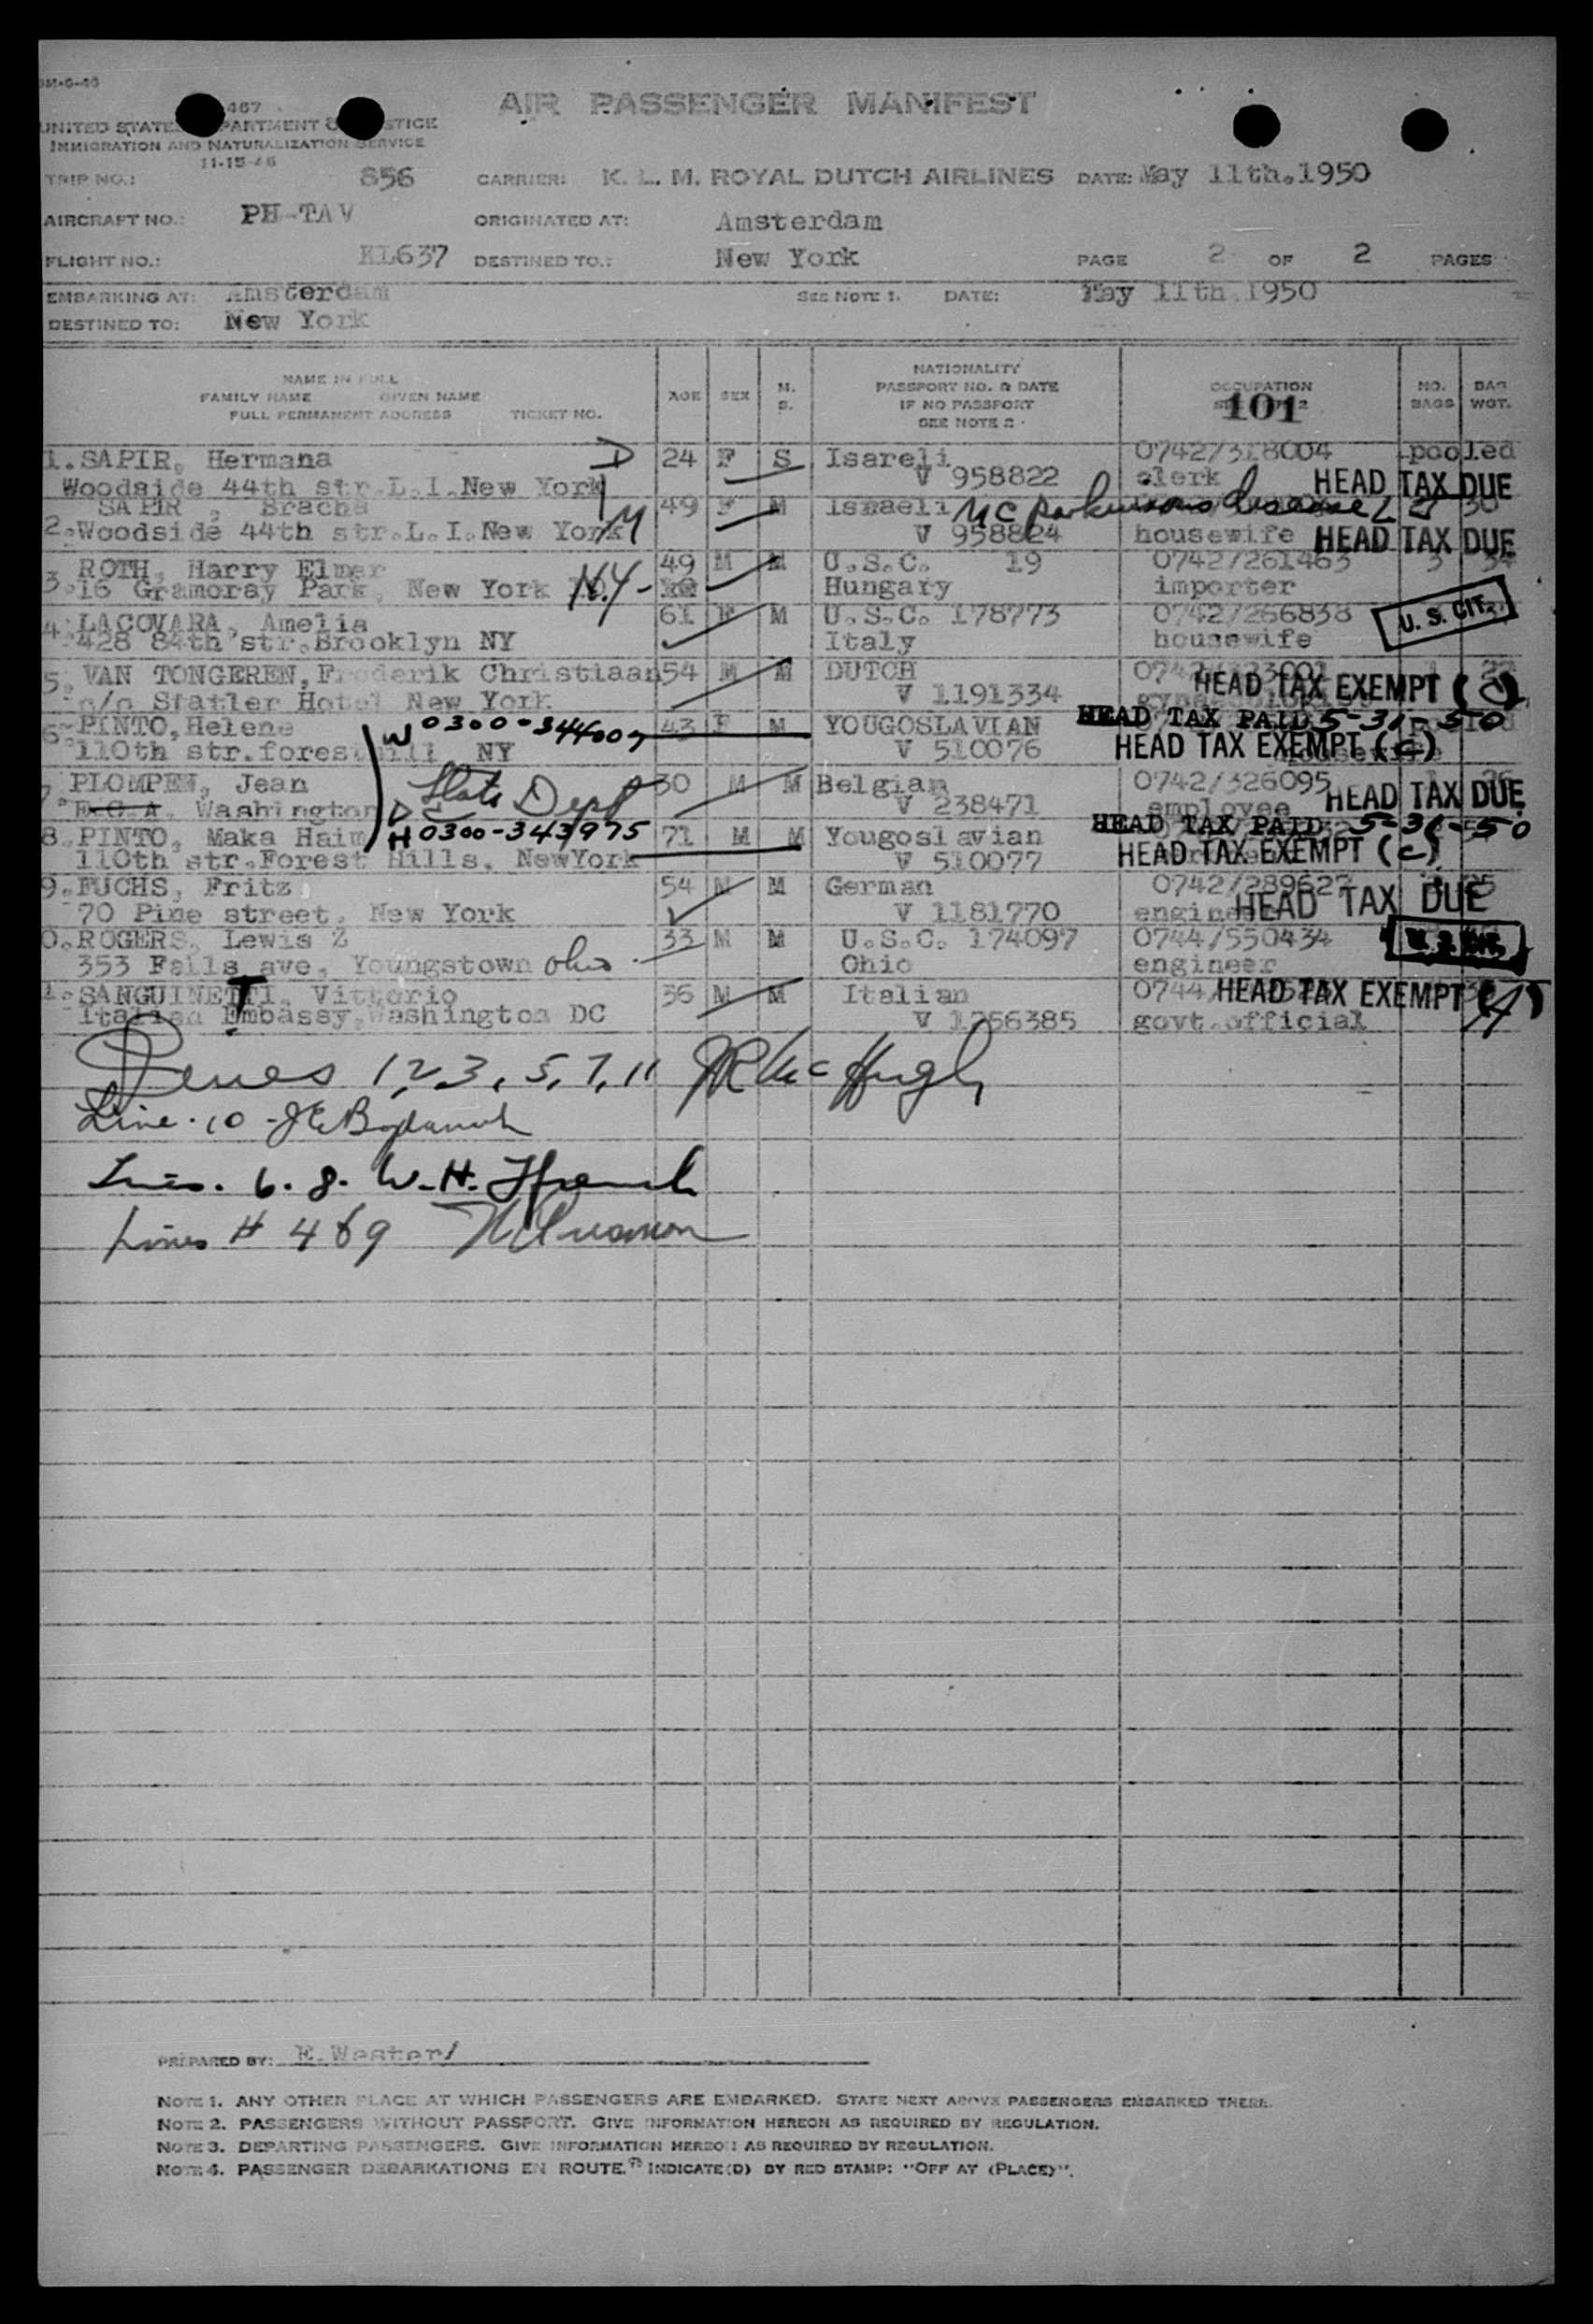 AIR PASSENGER MANIFEST
IMMIGRATION AND NATURALIZATION SERVICE
11-15-46
TRIP NO.: 856 CARRIER: K. L. M. ROYAL DUTCH AIRLINES DATE: May 11th.1950
AIRCRAFT NO.: PH-TAV ORIGINATED AT: Amsterdam
FLIGHT NO.: KL637 DESTINED TO.: New York PAGE 2 OF 2 PAGES
EMBARKING AT: Amsterdam SEE NOTE 1. DATE: May 11th.1950
DESTINED TO: New York
NAME IN FULL
FAMILY NAME GIVEN NAME
FULL PERMANENT ADDRESS TICKET NO.
AGE SEX M. S.
NATIONALITY
PASSPORT NO. & DATE
IF NO PASSPORT
SEE NOTE 2
OCCUPATION
101
NO. BAGS
BAG WGT.
1. SAPIR, Hermana D 24 F S Isareli 0742/318004 pooled
Woodside 44th str.L.I.New York V 958822 clerk HEAD TAX DUE
SAPIR , Bracha 49 F M Isnaeli Parkinsons disease
2. Woodside 44th str.L.I.New York M V 958824 housewife HEAD TAX DUE
ROTH, Harry Elmer 49 M M U.S.C. 19 0742/261463 3
3. 16 Gramoray Park, New York N.Y- Hungary importer
4. LACOVARA, Amelia 61 F M U.S.C. 178773 0742/266838 U. S. CIT.
428 84th str.Brooklyn NY Italy housewife
5. VAN TONGEREN, Frederik Christiaan 54 M M DUTCH
c/o Statler Hotel New York V 1191334 HEAD TAX EXEMPT (c)
6. PINTO, Helene W 0300-344007 43 F M YOUGOSLAVIAN HEAD TAX PAID 5-31-50
110th str.forest hill NY V 510076 HEAD TAX EXEMPT (c)
PLOMPEN, Jean State Dept 30 M M Belgian 0742/326095
E.C.A. Washington D C V 238471 employee HEAD TAX DUE
8. PINTO, Maka Haim H 0300-343975 71 M M Yougoslavian HEAD TAX PAID 5-31-50
110th str.Forest Hills, NewYork V 510077 HEAD TAX EXEMPT (c)
9. FUCHS, Fritz 54 M M German 0742/289627
70 Pine street, New York V 1181770 engineer HEAD TAX DUE
0. ROGERS, Lewis Z 33 M M U.S.C. 174097 0744/550434
353 Falls ave, Youngstown Ohio Ohio engineer
1. SANGUINETTI, Vittorio 36 M M Italian HEAD TAX EXEMPT (A)
Italian Embassy,Washington DC V 1256385 govt.official
Lines 1,2,3, 5, 7, 11 JR McHugh
Line 10
Lines. 6. 8. W. H.
Lines # 4 & 9
PREPARED BY: E.Wester
NOTE 1. ANY OTHER PLACE AT WHICH PASSENGERS ARE EMBARKED. STATE NEXT ABOVE PASSENGERS EMBARKED THERE.
NOTE 2. PASSENGERS WITHOUT PASSPORT. GIVE INFORMATION HEREON AS REQUIRED BY REGULATION.
NOTE 3. DEPARTING PASSENGERS. GIVE INFORMATION HEREON AS REQUIRED BY REGULATION.
NOTE 4. PASSENGER DEBARKATIONS EN ROUTE. INDICATE(D) BY RED STAMP: "OFF AT (PLACE)".